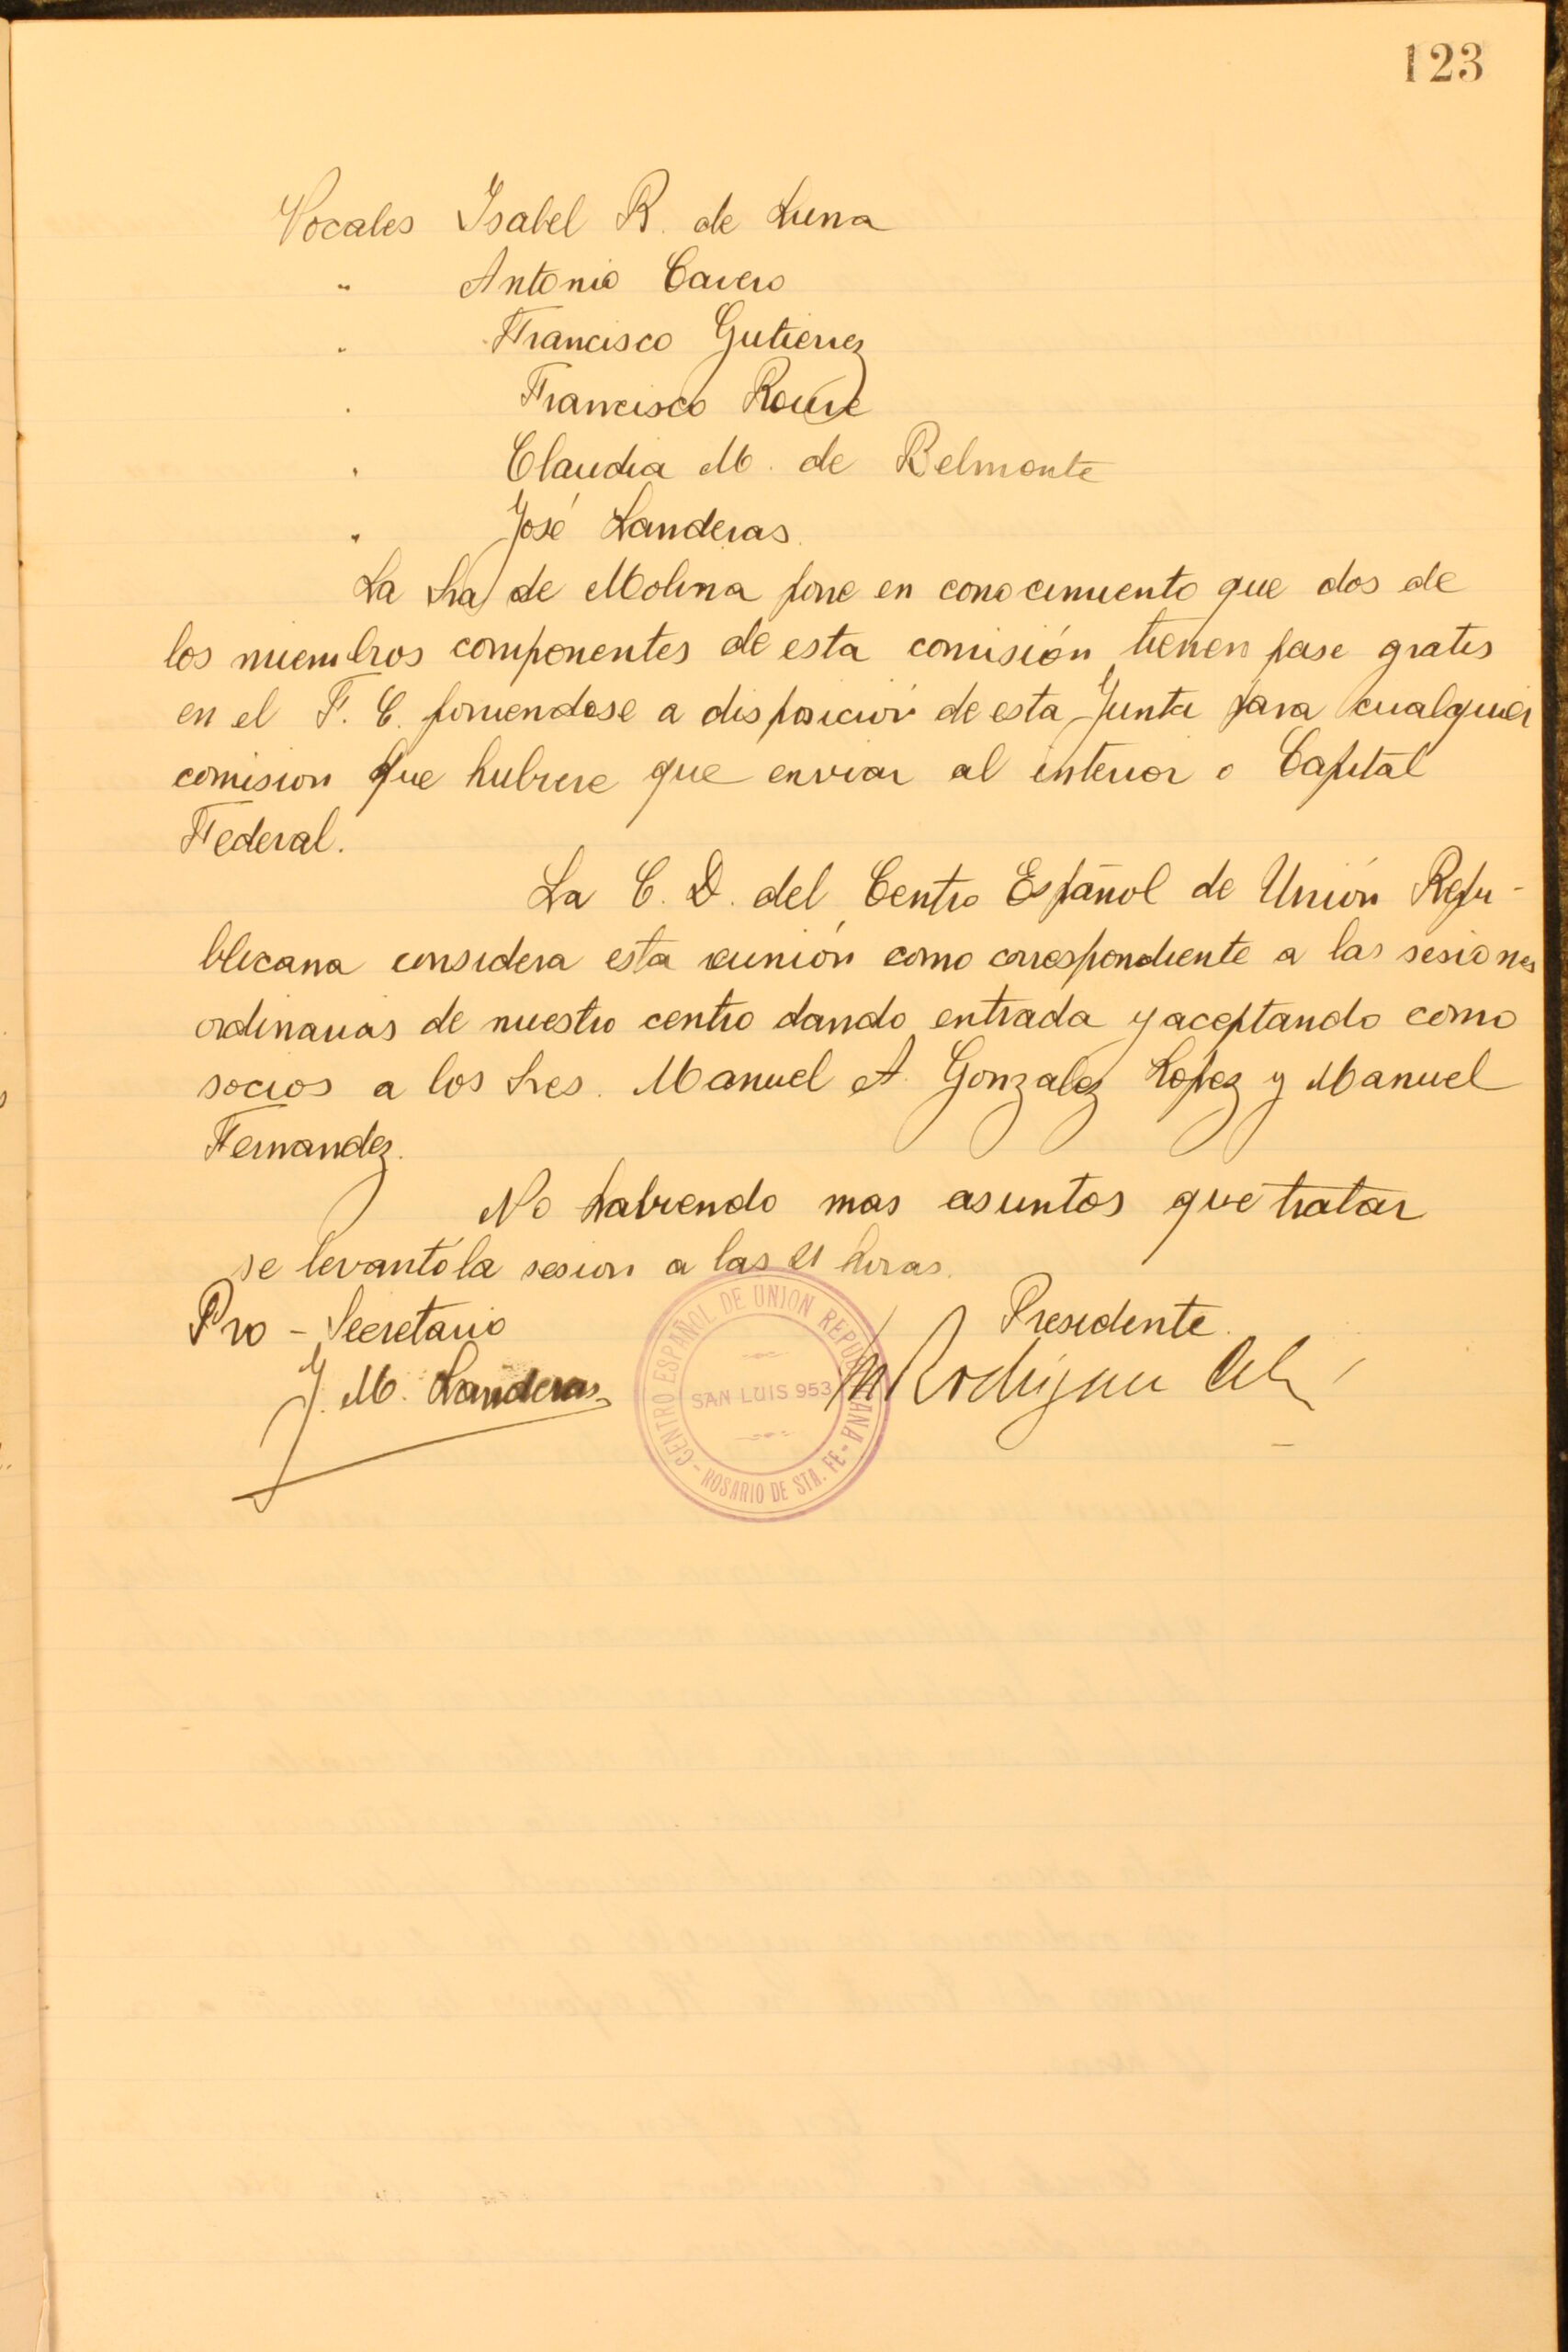 123
Vocales Isabel R. de Luna
" Antonio Cavero
" Francisco Gutierrez
" Francisco Roure
" Claudia M. de Belmonte
" José Landeras
La Sra de Molina pone en conocimiento que dos de
los miembros componentes de esta comisión tienen pase gratis
en el F. C. poniendose a disposición de esta Junta para cualquier
comision que hubiere que enviar al interior o Capital
Federal.
La C. D. del Centro Español de Unión Repu-
blicana considera esta reunión como correspondiente a las sesiones
ordinarias de nuestro centro dando entrada y aceptando como
socios a los Sres. Manuel A. Gonzalez Lopez y Manuel
Fernandez.
No habiendo mas asuntos que tratar
se levantó la sesion a las 21 horas.
Pro - Secretario
Presidente.
J. M. Landeras
M Rodriguez
CENTRO ESPAÑOL DE UNION REPUBLICANA
SAN LUIS 953
- ROSARIO DE STA. FE -